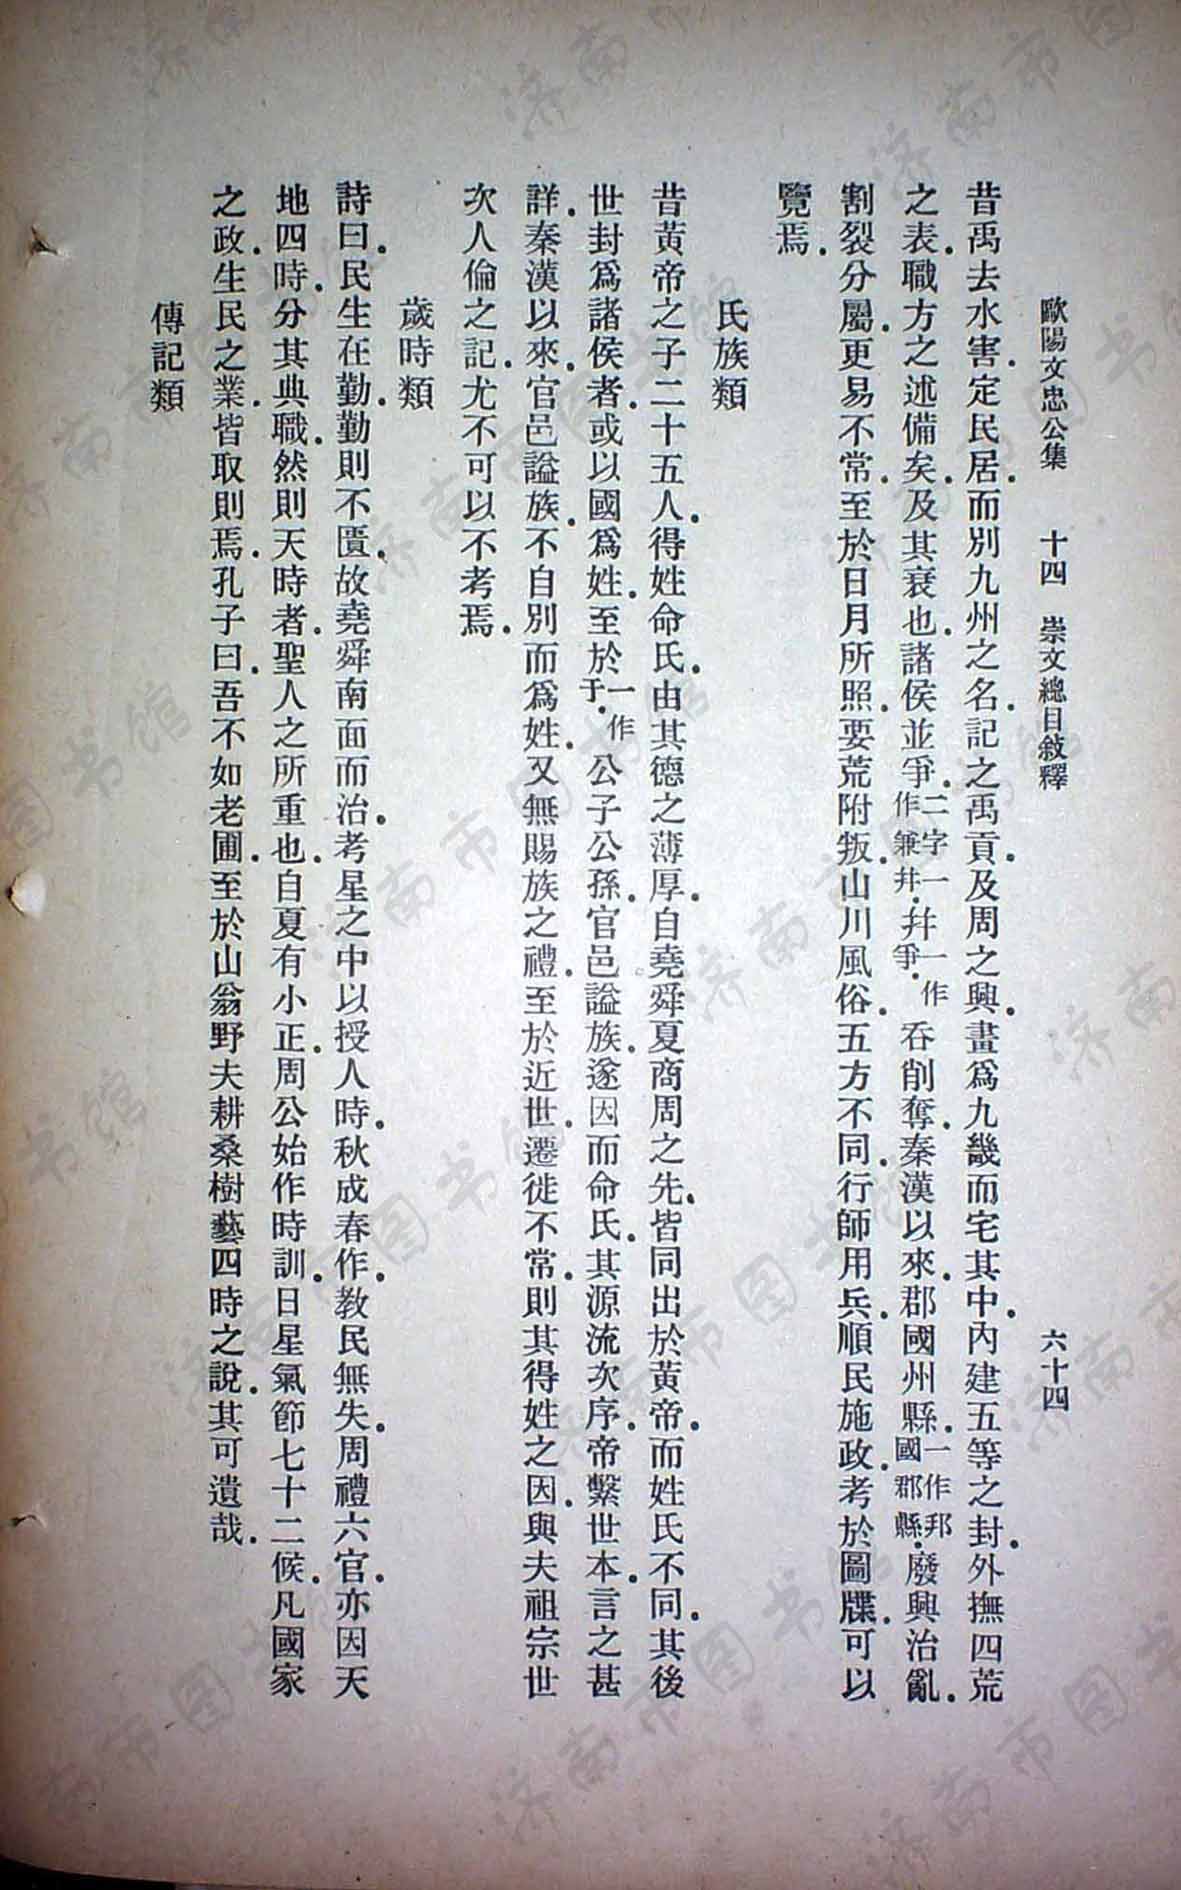 歐陽文忠公集　十四　崇文總目敍釋　六十四
昔禹去水害．定民居．而別九州之名．記之禹貢．及周之興．畫爲九畿而宅其中．內建五等之封．外撫四荒
之表．職方之述備矣．及其衰也．諸侯並爭．二字一作兼幷．幷一作爭．吞削奪．秦漢以來．郡國州縣．一作邦國郡縣．廢興治亂．
割裂分屬．更易不常．至於日月所照．要荒附叛．山川風俗．五方不同．行師用兵．順民施政．考於圖牒．可以
覽焉．
氏族類
昔黃帝之子二十五人．得姓命氏．由其德之薄厚．自堯舜夏商周之先．皆同出於黃帝．而姓氏不同．其後
世封爲諸侯者．或以國爲姓．至於一作于．公子公孫．官邑謚族．遂因而命氏．其源流次序．帝繫世本．言之甚
詳．秦漢以來．官邑謚族．不自別而爲姓．又無賜族之禮．至於近世．遷徙不常．則其得姓之因．與夫祖宗世
次人倫之記．尤不可以不考焉．
歲時類
詩曰．民生在勤．勤則不匱．故堯舜南面而治．考星之中以授人時．秋成春作．教民無失．周禮六官．亦因天
地四時．分其典職．然則天時者．聖人之所重也．自夏有小正．周公始作時訓．日星氣節七十二候．凡國家
之政．生民之業．皆取則焉．孔子曰．吾不如老圃．至於山翁野夫耕桑樹藝四時之說．其可遺哉．
傳記類
济南市图书馆